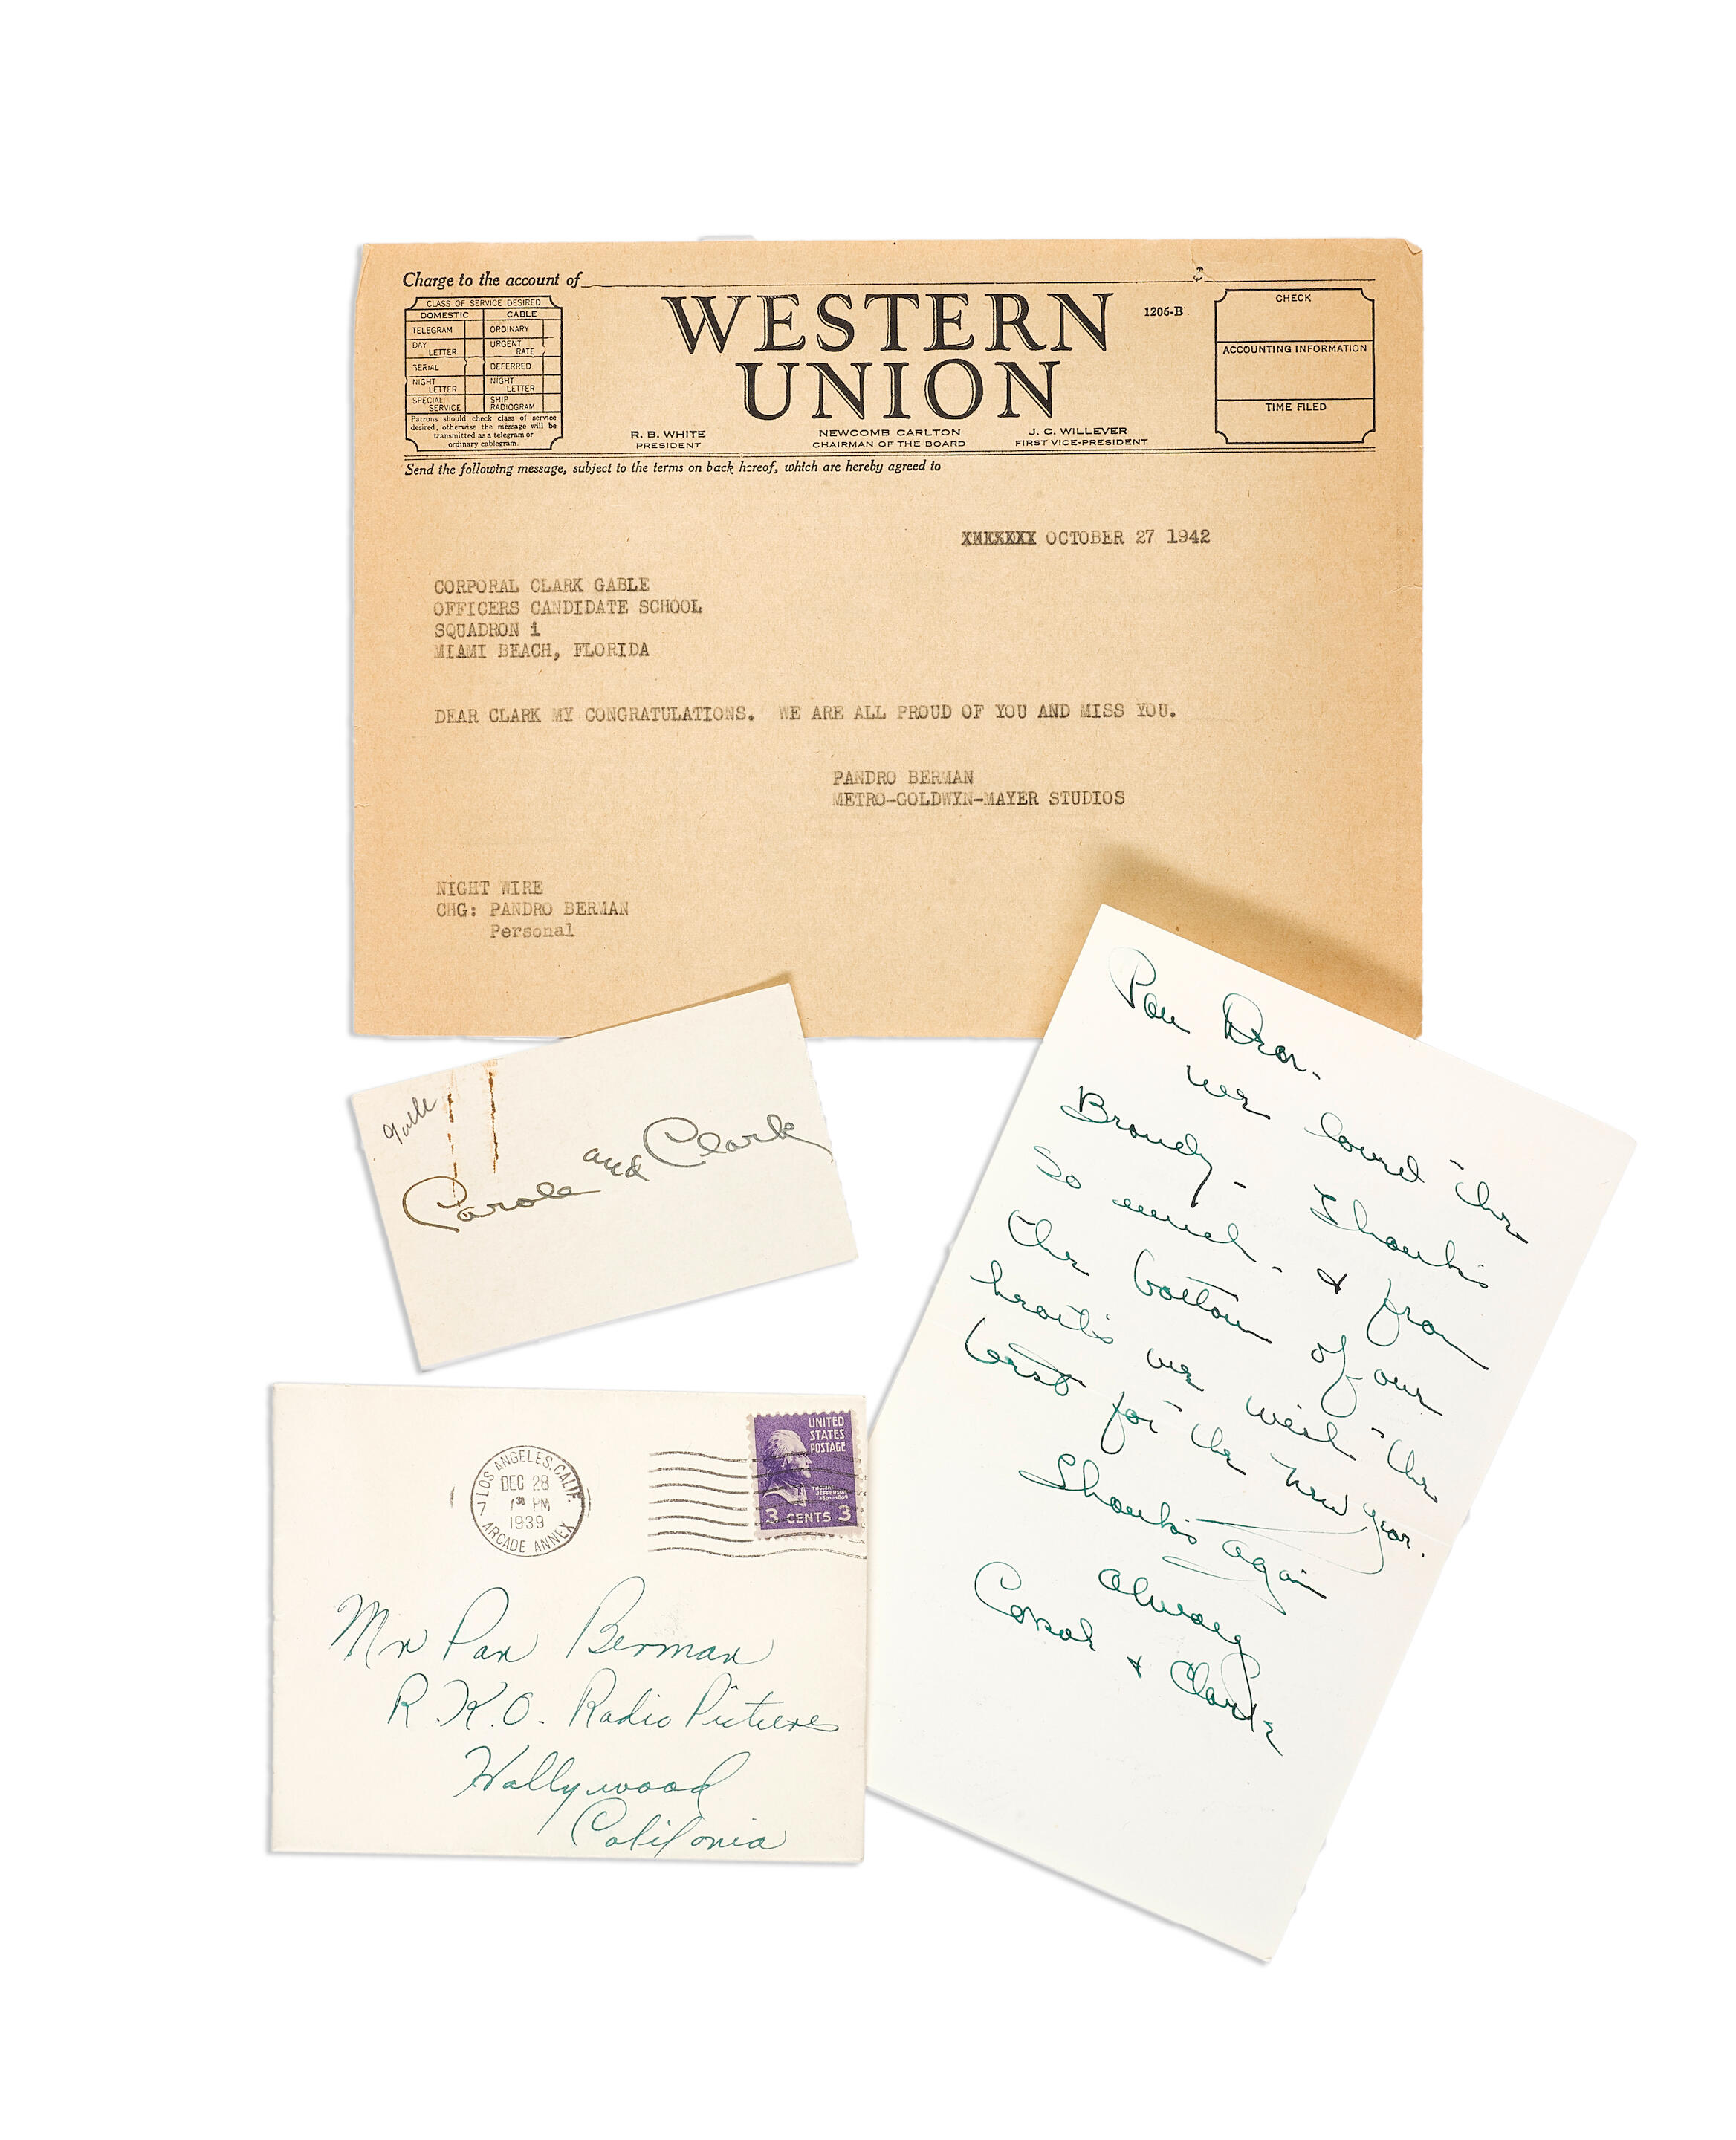 Charge to the account of
CLASS OF SERVICE DESIRED
DOMESTIC CABLE
TELEGRAM ORDINARY
DAY LETTER URGENT RATE
SERIAL DEFERRED
NIGHT LETTER NIGHT LETTER
SPECIAL SERVICE SHIP RADIOGRAM
Patrons should check class of service
desired, otherwise the message will be
transmitted as a telegram or
ordinary cablegram.
WESTERN
UNION
1206-B
CHECK
ACCOUNTING INFORMATION
TIME FILED
R. B. WHITE
PRESIDENT
NEWCOMB CARLTON
CHAIRMAN OF THE BOARD
J. C. WILLEVER
FIRST VICE-PRESIDENT
Send the following message, subject to the terms on back hereof, which are hereby agreed to
OCTOBER 27 1942
CORPORAL CLARK GABLE
OFFICERS CANDIDATE SCHOOL
SQUADRON i
MIAMI BEACH, FLORIDA
DEAR CLARK MY CONGRATULATIONS. WE ARE ALL PROUD OF YOU AND MISS YOU.
PANDRO BERMAN
METRO-GOLDWYN-MAYER STUDIOS
NIGHT WIRE
CHG: PANDRO BERMAN
Personal
Gable
Carole and Clark
Pan Dear-
we loved the
Brandy- Thanks
so much- & from
the bottom of our
hearts we wish the
best for the new year.
Thanks again
always
Carole & Clark
LOS ANGELES, CALIF.
DEC 28
1 30 PM
1939
ARCADE ANNEX
UNITED
STATES
POSTAGE
THOMAS
JEFFERSON
1801-1809
3 CENTS 3
Mr Pan Berman
R.K.O. Radio Pictures
Hollywood
California